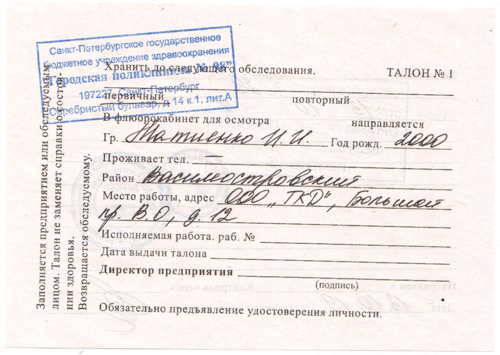 Санкт-Петербургское государственное
бюджетное учреждение здравоохранения
"Городская поликлиника № 98"
197227, Санкт-Петербург
Серебристый бульвар, д 14 к.1. лит.А
Хранить до следующего обследования. ТАЛОН № 1
первичный повторный
В флюорокабинет для осмотра направляется
Гр. И.И. Год рожд. 2000
Проживает тел. —
Район Василеостровский
Место работы, адрес ООО „ТКД", Большой
пр. В.О, д. 12
Исполняемая работа. раб. №
Дата выдачи талона
Директор предприятия
(подпись)
Обязательно предъявление удостоверения личности.
Заполняется предприятием или обследуемым
лицом. Талон не заменяет справки о состоя-
нии здоровья.
Возвращается обследуемому.